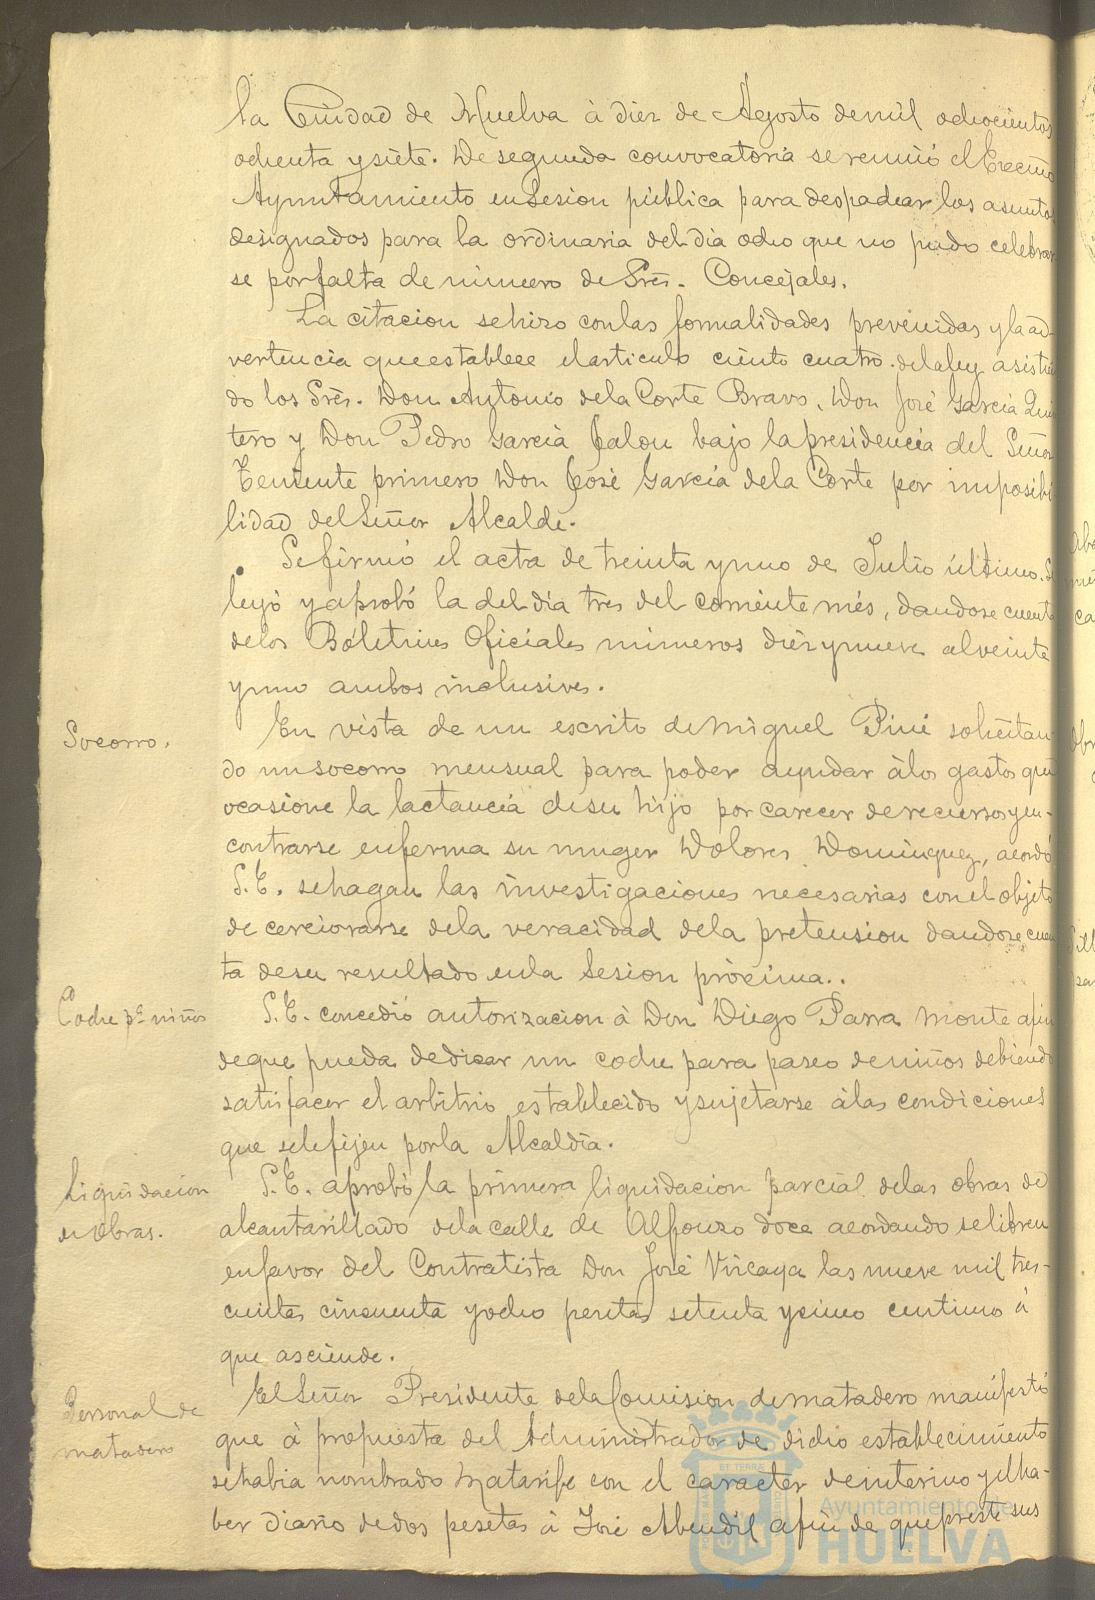 la Ciudad de Huelva à diez de Agosto de mil ochocientos
ochenta y siete. De segunda convocatoria se reunió el Excmo
Ayuntamiento en Sesion pública para despachar los asuntos
designados para la ordinaria del dia ocho que no pudo celebrar
se por falta de número de Sres. Concejales.
La citacion se hizo con las formalidades prevenidas y la ad-
vertencia que establece el articulo ciento cuatro de la ley asistien
do los Sres. Don Antonio de la Corte Bravo, Don José Garcia Quin
tero y Don Pedro Garcia Jalon bajo la presidencia del Señor
Teniente primero Don José Garcia de la Corte por imposibi
lidad del Señor Alcalde.
Se firmó el acta de treinta y uno de Julio último. Se
leyó y aprobó la del dia tres del corriente més, dandose cuenta
de los Boletines Oficiales números diez y nueve al veinte
y uno ambos inclusives.
Socorro.
En vista de un escrito de Miguel Pini solicitan
do un socorro mensual para poder ayudar à los gastos que
ocasione la lactancia de su hijo por carecer de recursos y en-
contrarse enferma su muger Dolores Dominguez, acordó
S.E. se hagan las investigaciones necesarias con el objeto
de cerciorarse de la veracidad de la pretension dandose cuen
ta de su resultado en la Sesion pròcima..
Coche pª niños
S.E. concedió autorizacion à Don Diego Parra Monte a fin
de que pueda dedicar un coche para paseo de niños debiendo
satisfacer el arbitrio establecido y sujetarse à las condiciones
que se le fijen por la Alcaldia.
Liquidacion
de obras.
S.E. aprobó la primera liquidacion parcial de las obras de
alcantarillado de la calle de Alfonso doce acordando se libren
en favor del Contratista Don José Vizcaya las nueve mil tres-
cientas cincuenta y ocho pesetas setenta y cinco centimos à
que asciende.
Personal de
matadero
El Señor Presidente de la Comision de matadero manifestó
que à propuesta del Administrador de dicho establecimiento
se habia nombrado Matarife con el caracter de interino y el ha-
ber diario de dos pesetas à José Abendil a fin de que preste sus
Ayuntamiento de
HUELVA